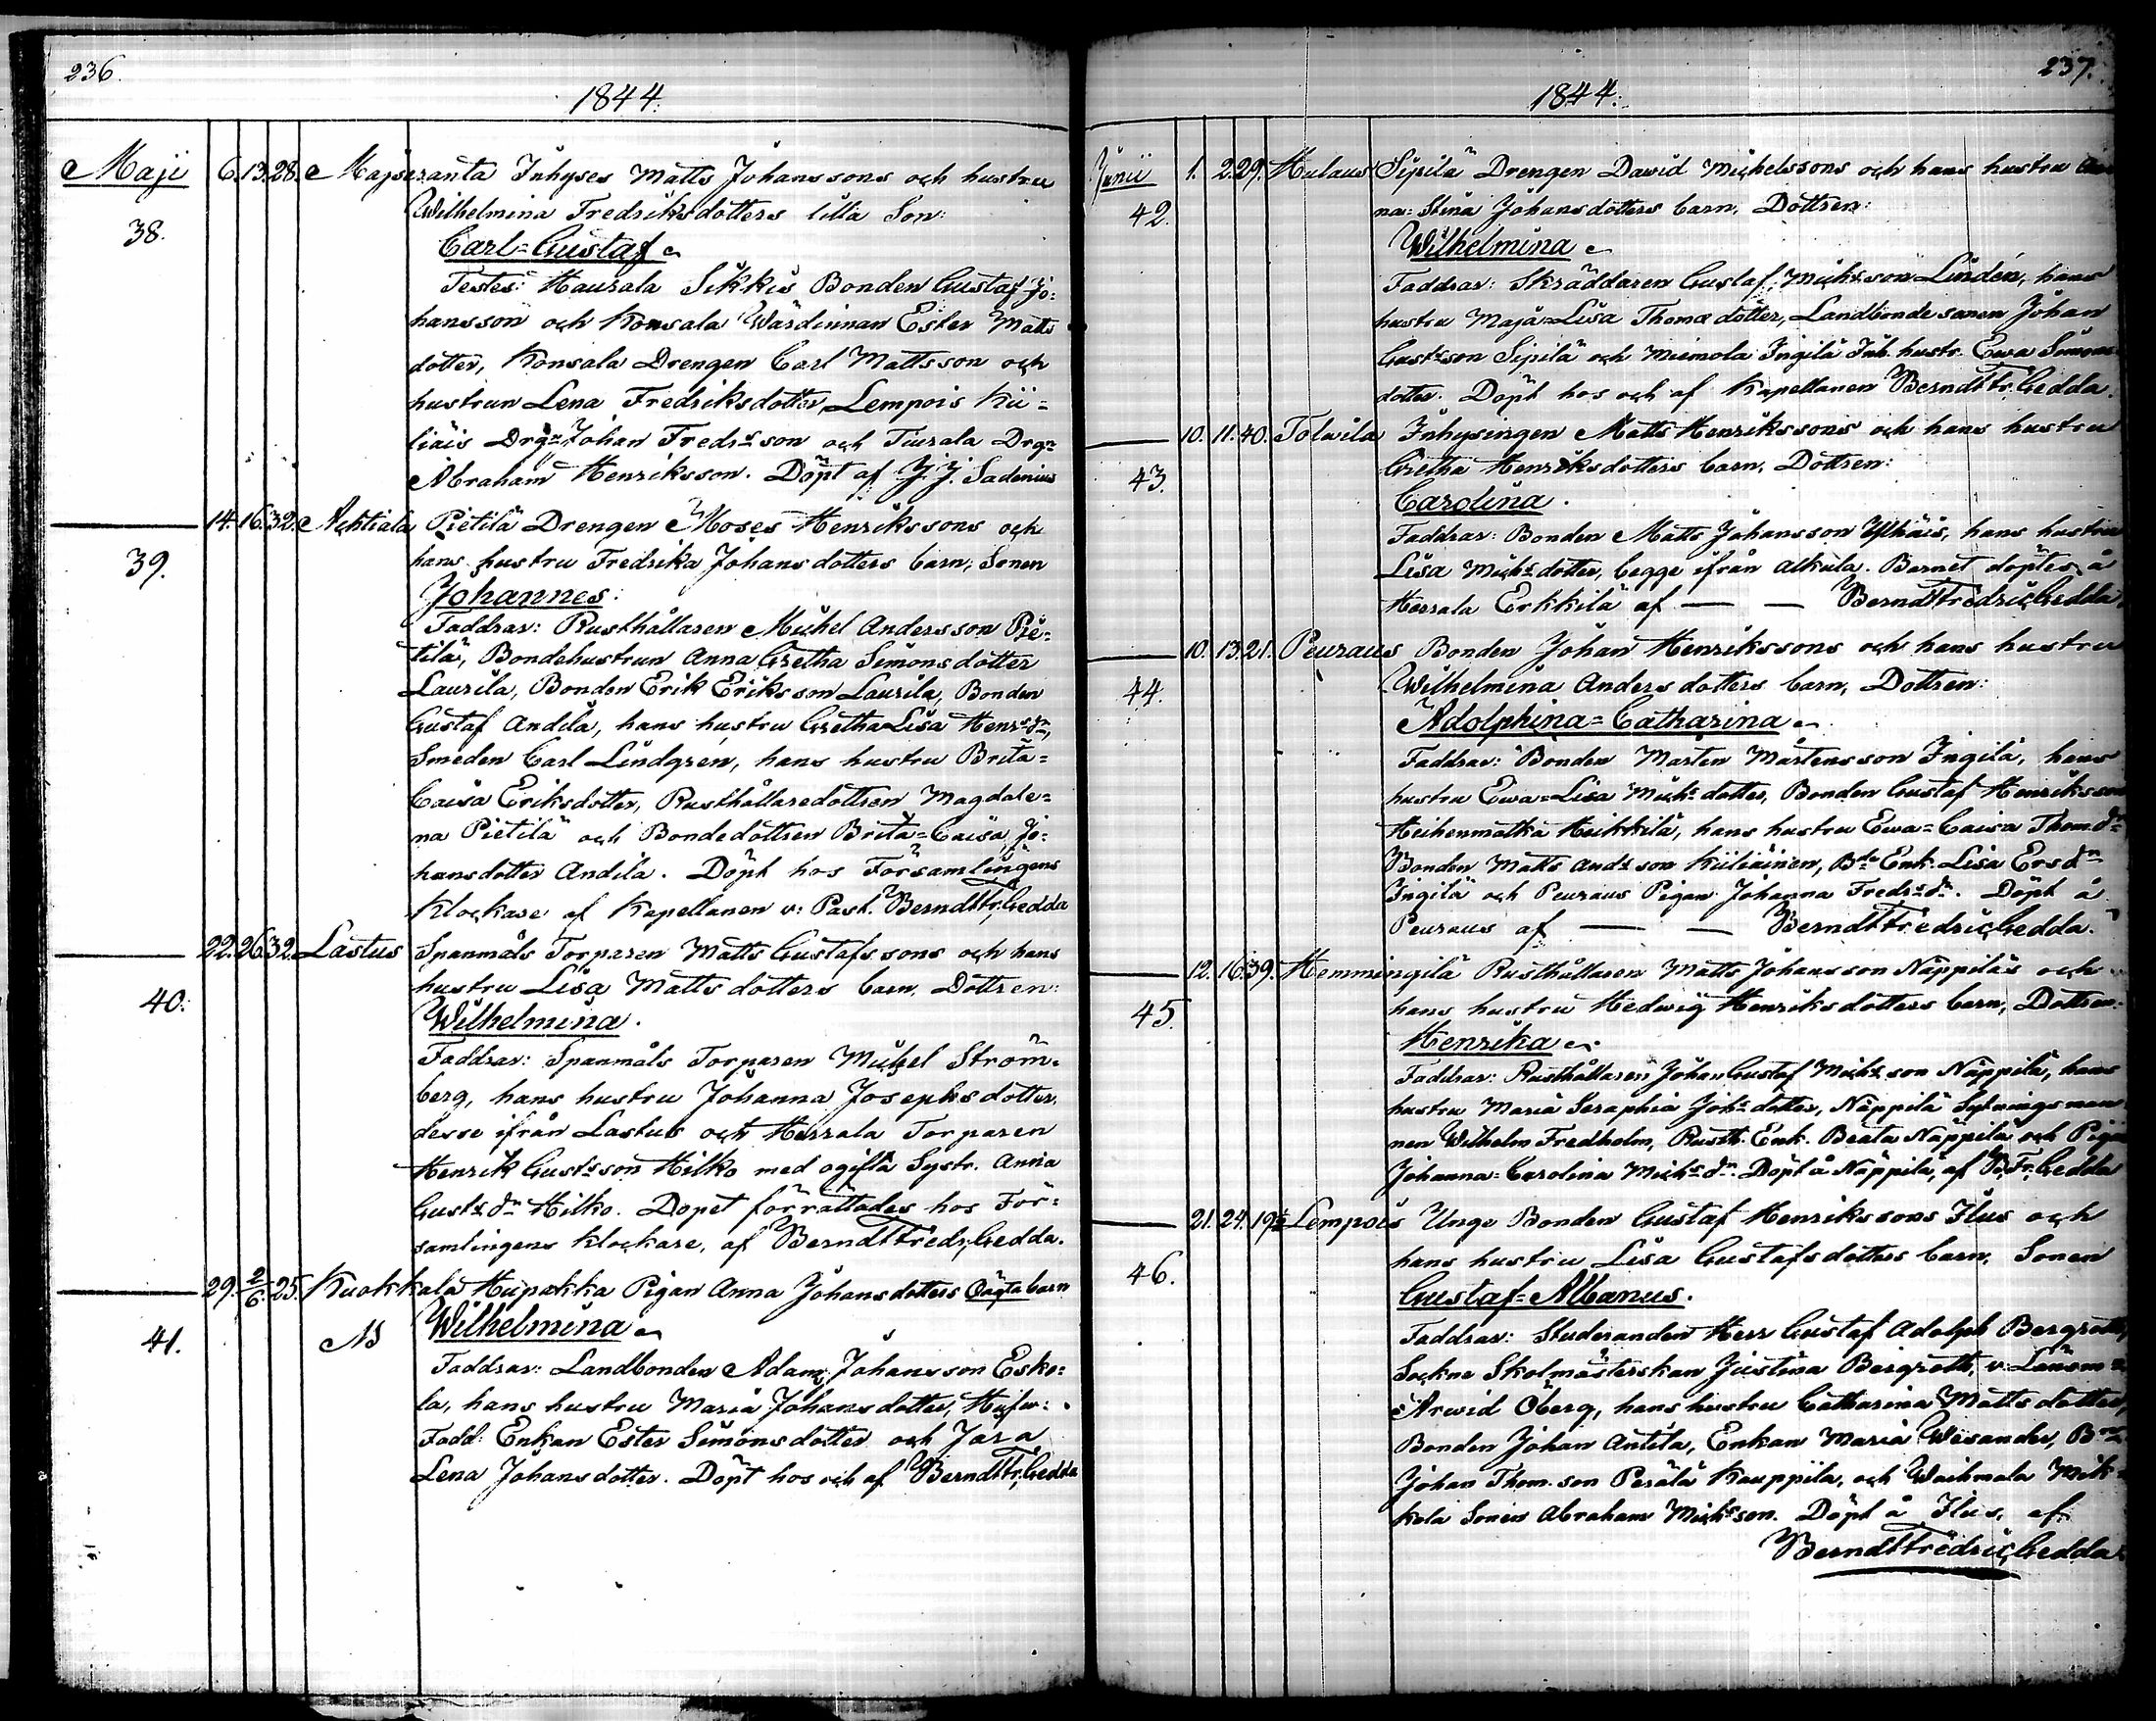 236.
1844.
Maji 6. 13. 28. Majseranta Inhyses Matts Johanssons och hustru
38. Wilhelmina Fredriksdotters lilla Son:
Carl=Gustaf
Testes: Haurala Sikkis Bonden Gustaf Jo=
hansson och Konsala Wärdinnan Ester Matts
dotter, Konsala Drengen Carl Mattsson och
hustrun Lena Fredriksdotter, Lempois Kii=
liäis Drgn Johan Fredrsson och Tiurala Drgn
Abraham Henriksson. Döpt af J. J. Sadenius
14. 16. 32. Achtiala Pietilä Drengen Moses Henrikssons och
39. hans hustru Fredrika Johansdotters barn, Sonen
Johannes.
Faddrar: Rusthållaren Michel Andersson Pie=
tilä, Bondehustrun Anna Gretha Simonsdotter
Laurila, Bonden Erik Eriksson Laurila, Bonden
Gustaf Andila, hans hustru Gretha Lisa Henrsdr,
Smeden Carl Lindgren, hans hustru Brita=
Caisa Eriksdotter, Rusthållaredottren Magdale=
na Pietilä och Bondedottren Brita=Caisa Jo=
hansdotter Andila. Döpt hos Församlingens
Klockare af Kapellanen v: Past. Berndt Fr. Gedda
22. 26. 32. Lastus Spanmåls Torparen Matts Gustafssons och hans
40. hustru Lisa Mattsdotters barn, Dottren:
Wilhelmina.
Faddrar: Spanmåls Torparen Michel Ström=
berg, hans hustru Johanna Josephsdotter,
desse ifrån Lastus och Herrala Torparen
Henrik Gustsson Hilko med ogifta Systr. Anna
Gustsdr Hilko. Dopet förrättades hos För=
samlingens Klockare, af Berndt Fredr. Gedda.
29. 2/6. 25. Kuokkala Hüpakka Pigan Anna Johansdotters Oägta barn
41. NB Wilhelmina
Faddrar: Landbonden Adam Johansson Esko=
la, hans hustru Maria Johansdotter, Hufw:
Fadd: Enkan Ester Simonsdotter och Jara
Lena Johansdotter. Döpt hos och af Berndt Fr. Gedda
237.
1844.
Junii 1. 2. 29. Hulaus Sipilä Drengen Dawid Michelssons och hans hustru An
42. na=Stina Johansdotters barn, Dottren:
Wilhelmina
Faddrar: Skräddaren Gustaf Michsson Lindén, hans
hustru Maja=Lisa Thomædotter, Landbondesonen Johan
Gustsson Sipilä och Miemola Ingilä Inh. hustr. Ewa Simons
dotter. Döpt hos och af Kapellanen Berndt Fr. Gedda.
10. 11. 40. Tolwila Inhysingen Matts Henrikssons och hans hustru
43. Gretha Henriksdotters barn, Dottren:
Carolina.
Faddrar: Bonden Matts Johansson Ylhäis, hans hustru
Lisa Michsdotter, begge ifrån Alkula. Barnet döptes å
Herrala Erkkilä af — — Berndt Fredric Gedda
10. 13. 21. Peuraus Bonden Johan Henrikssons och hans hustru
44. Wilhelmina Andersdotters barn, Dottren:
Adolphina=Catharina
Faddrar: Bonden Mårten Mårtensson Ingilä, hans
hustru Ewa=Lisa Michsdotter, Bonden Gustaf Henriksson
Heihenmatka Heikkilä, hans hustru Ewa=Caisa Thom.dr
Bonden Matts Andsson Kiiliäinen, Bde Enk. Lisa Ersdr
Ingilä och Peuraus Pigan Johanna Fredrsdr. Döpt å
Peuraus af — — Berndt Fredric Gedda.
12. 16. 39. Hemmingilä Rusthållaren Matts Johansson Näppiläs och
45. hans hustru Hedwig Henriksdotters barn, Dottren:
Henrika
Faddrar: Rusthållaren Johan Gustaf Michsson Näppilä, hans
hustru Maria Seraphia Johsdotter, Näppilä Sytningsman
nen Wilhelm Fredholm, Rusth. Enk. Beata Näppilä och Pigan
Johanna=Carolina Michsdr Döpt å Näppilä, af B. Fr. Gedda
21. 24. 19½ Lempois Unge Bonden Gustaf Henrikssons Ilus och
46. hans hustru Lisa Gustafsdotters barn, Sonen
Gustaf=Albanus.
Faddrar: Studeranden Herr Gustaf Adolph Bergroth,
Sockne Skolmästerskan Justina Bergroth, v. Länsm
Arwid Öberg, hans hustru Catharina Mattsdotter,
Bonden Johan Antila, Enkan Maria Wisander, Bn
Johan Thom.son Perälä Kauppila, och Waihmala Mik=
kola Sonen Abraham Michsson. Döpt å Ilus, af
Berndt Fredric Gedda